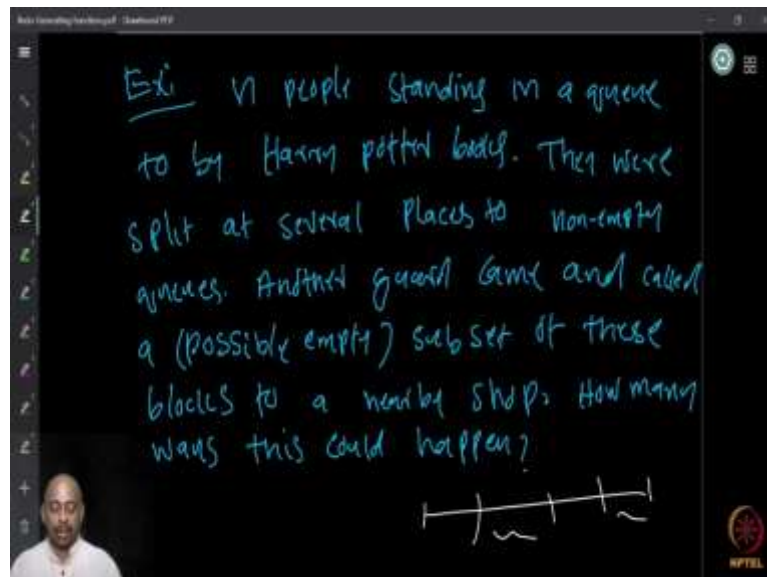 Ex: n people standing in a queue
to by Harry potter books. They were
split at several places to non-empty
queues. Another guard came and called
a (possible empty) subset of these
blocks to a nearby shop. How many
ways this could happen?
NPTEL